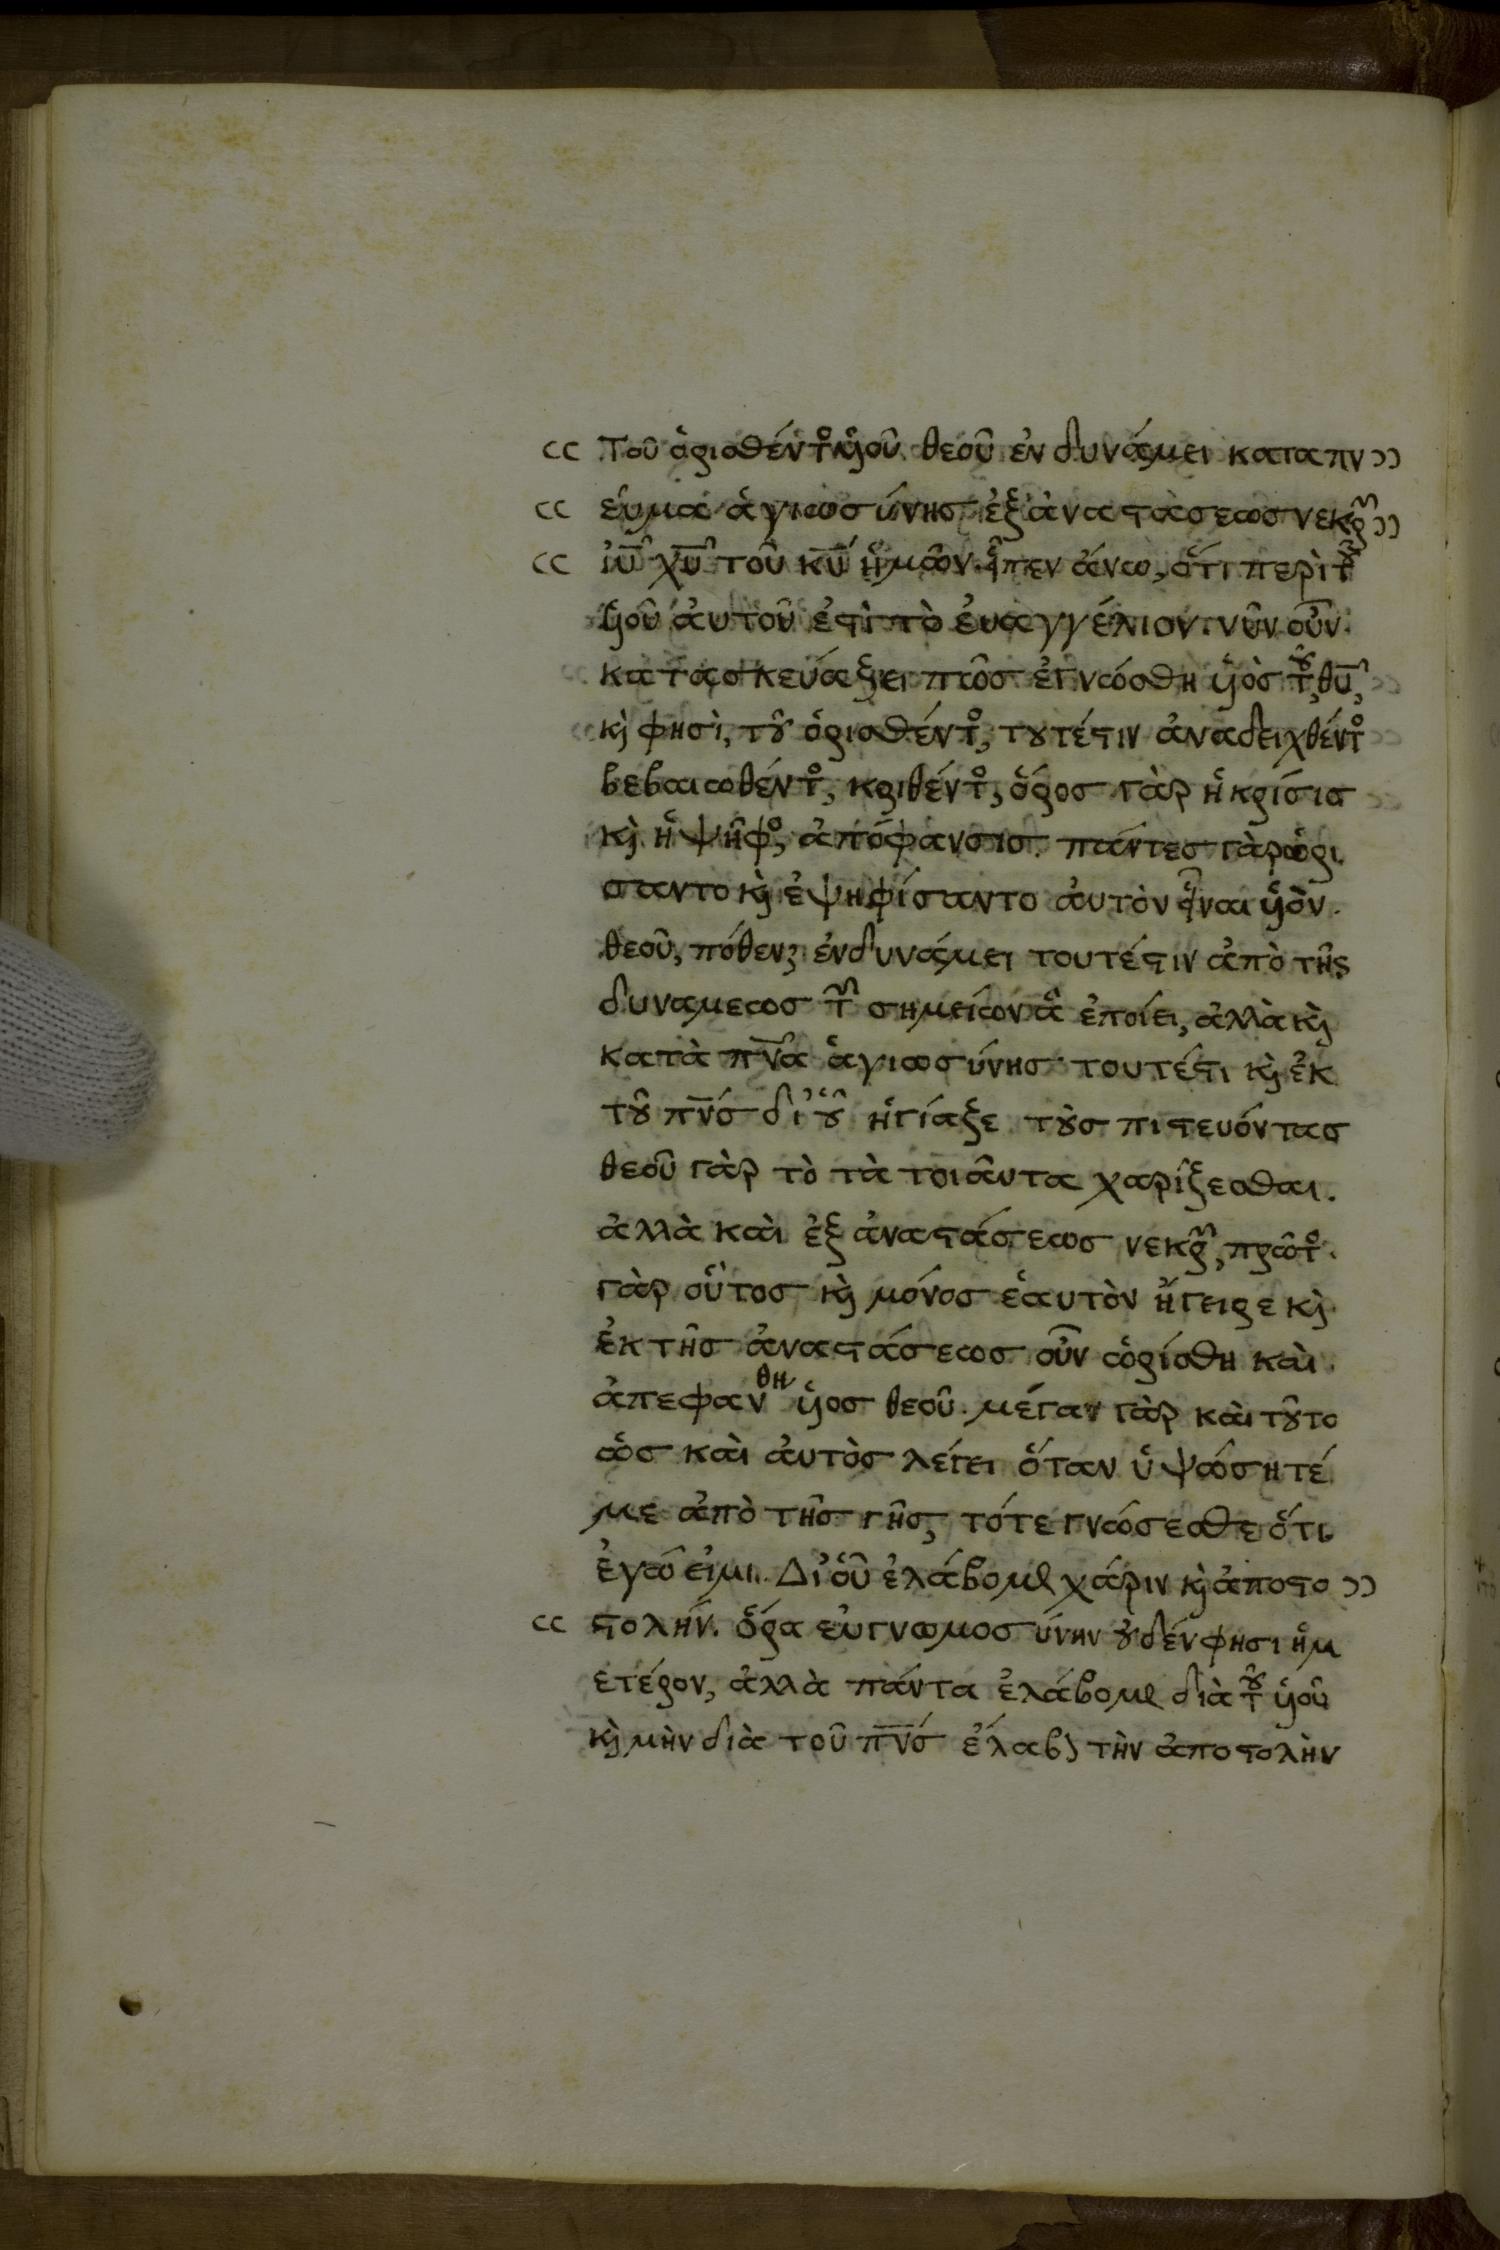 Τοῦ ὁρισθέντος υἱοῦ θεοῦ ἐν δυνάμει κατα πν
εύμα ἁγιωσύνησ ἐξ ἀναστάσεωσ νεκρῶν
ἰῦ χῦ τοῦ κῦ ἡμῶν. εἶπεν ἄνω, ὅτι περὶ τοῦ
υἱοῦ ἀυτοῦ ἐστὶ τὸ ἐυαγγέλιον. νῦν οὖν.
κατασκευάζει πῶσ ἐγνώσθη υἱὸσ τοῦ θῦ,
κὶ φησὶ, τοῦ ὁρισθέντος, τουτέστιν ἀναδειχθέντος
βεβαιωθέντος, κριθέντος, ὅρος γὰρ ἡ κρίσισ
κὶ ἡ ψῆφος, ἀπόφανσισ. πάντεσ γὰρ ὡρι
σαντο κὶ ἐψηφίσαντο ἀυτὸν εἶναι υἱὸν.
θεοῦ, πόθεν; ἐνδυνάμει τουτέστιν ἀπὸ τῆς
δυναμεωσ τῶν σημείων ἃ ἐποίει, ἀλλὰ κὶ
κατὰ πνα ἁγιωσύνησ· τουτέστι κὶ ἐκ
τοῦ πνσ δι' οὗ ἡγίαζε τοὺσ πιστευόντασ
θεοῦ γὰρ τὸ τὰ τοιᾶυτα χαρίζεσθαι.
ἀλλὰ καὶ ἐξ ἀναστάσεωσ νεκρῶν, πρῶτος.
γὰρ οὗτοσ κὶ μόνοσ ἑαυτὸν ἤγειρε κὶ
ἐκ τῆσ ἀναστάσεωσ οὖν ὡρίσθη καὶ.
ἀπεφανθη υἱοσ θεοῦ. μέγαν γὰρ καὶ τοῦτο
ὡσ καὶ ἀυτὸσ λέγει ὅταν ὑψώσητέ
με ἀπὸ τῆσ γῆσ, τότε γνώσεσθε ὅτι
ἐγώ εἰμι. Δι' οὗ ἐλάβομεν χάριν κὶ ἀποστο
στολήν. ὅρα ευγνωμοσύνην οὐδέν φησι ἡμ
ετέρον, ἀλλὰ πάντα ἐλάβομεν διὰ τοῦ υἱοῦ
κὶ μὴν διὰ τοῦ πνσ ἔλαβον τὴν ἀποστολὴν